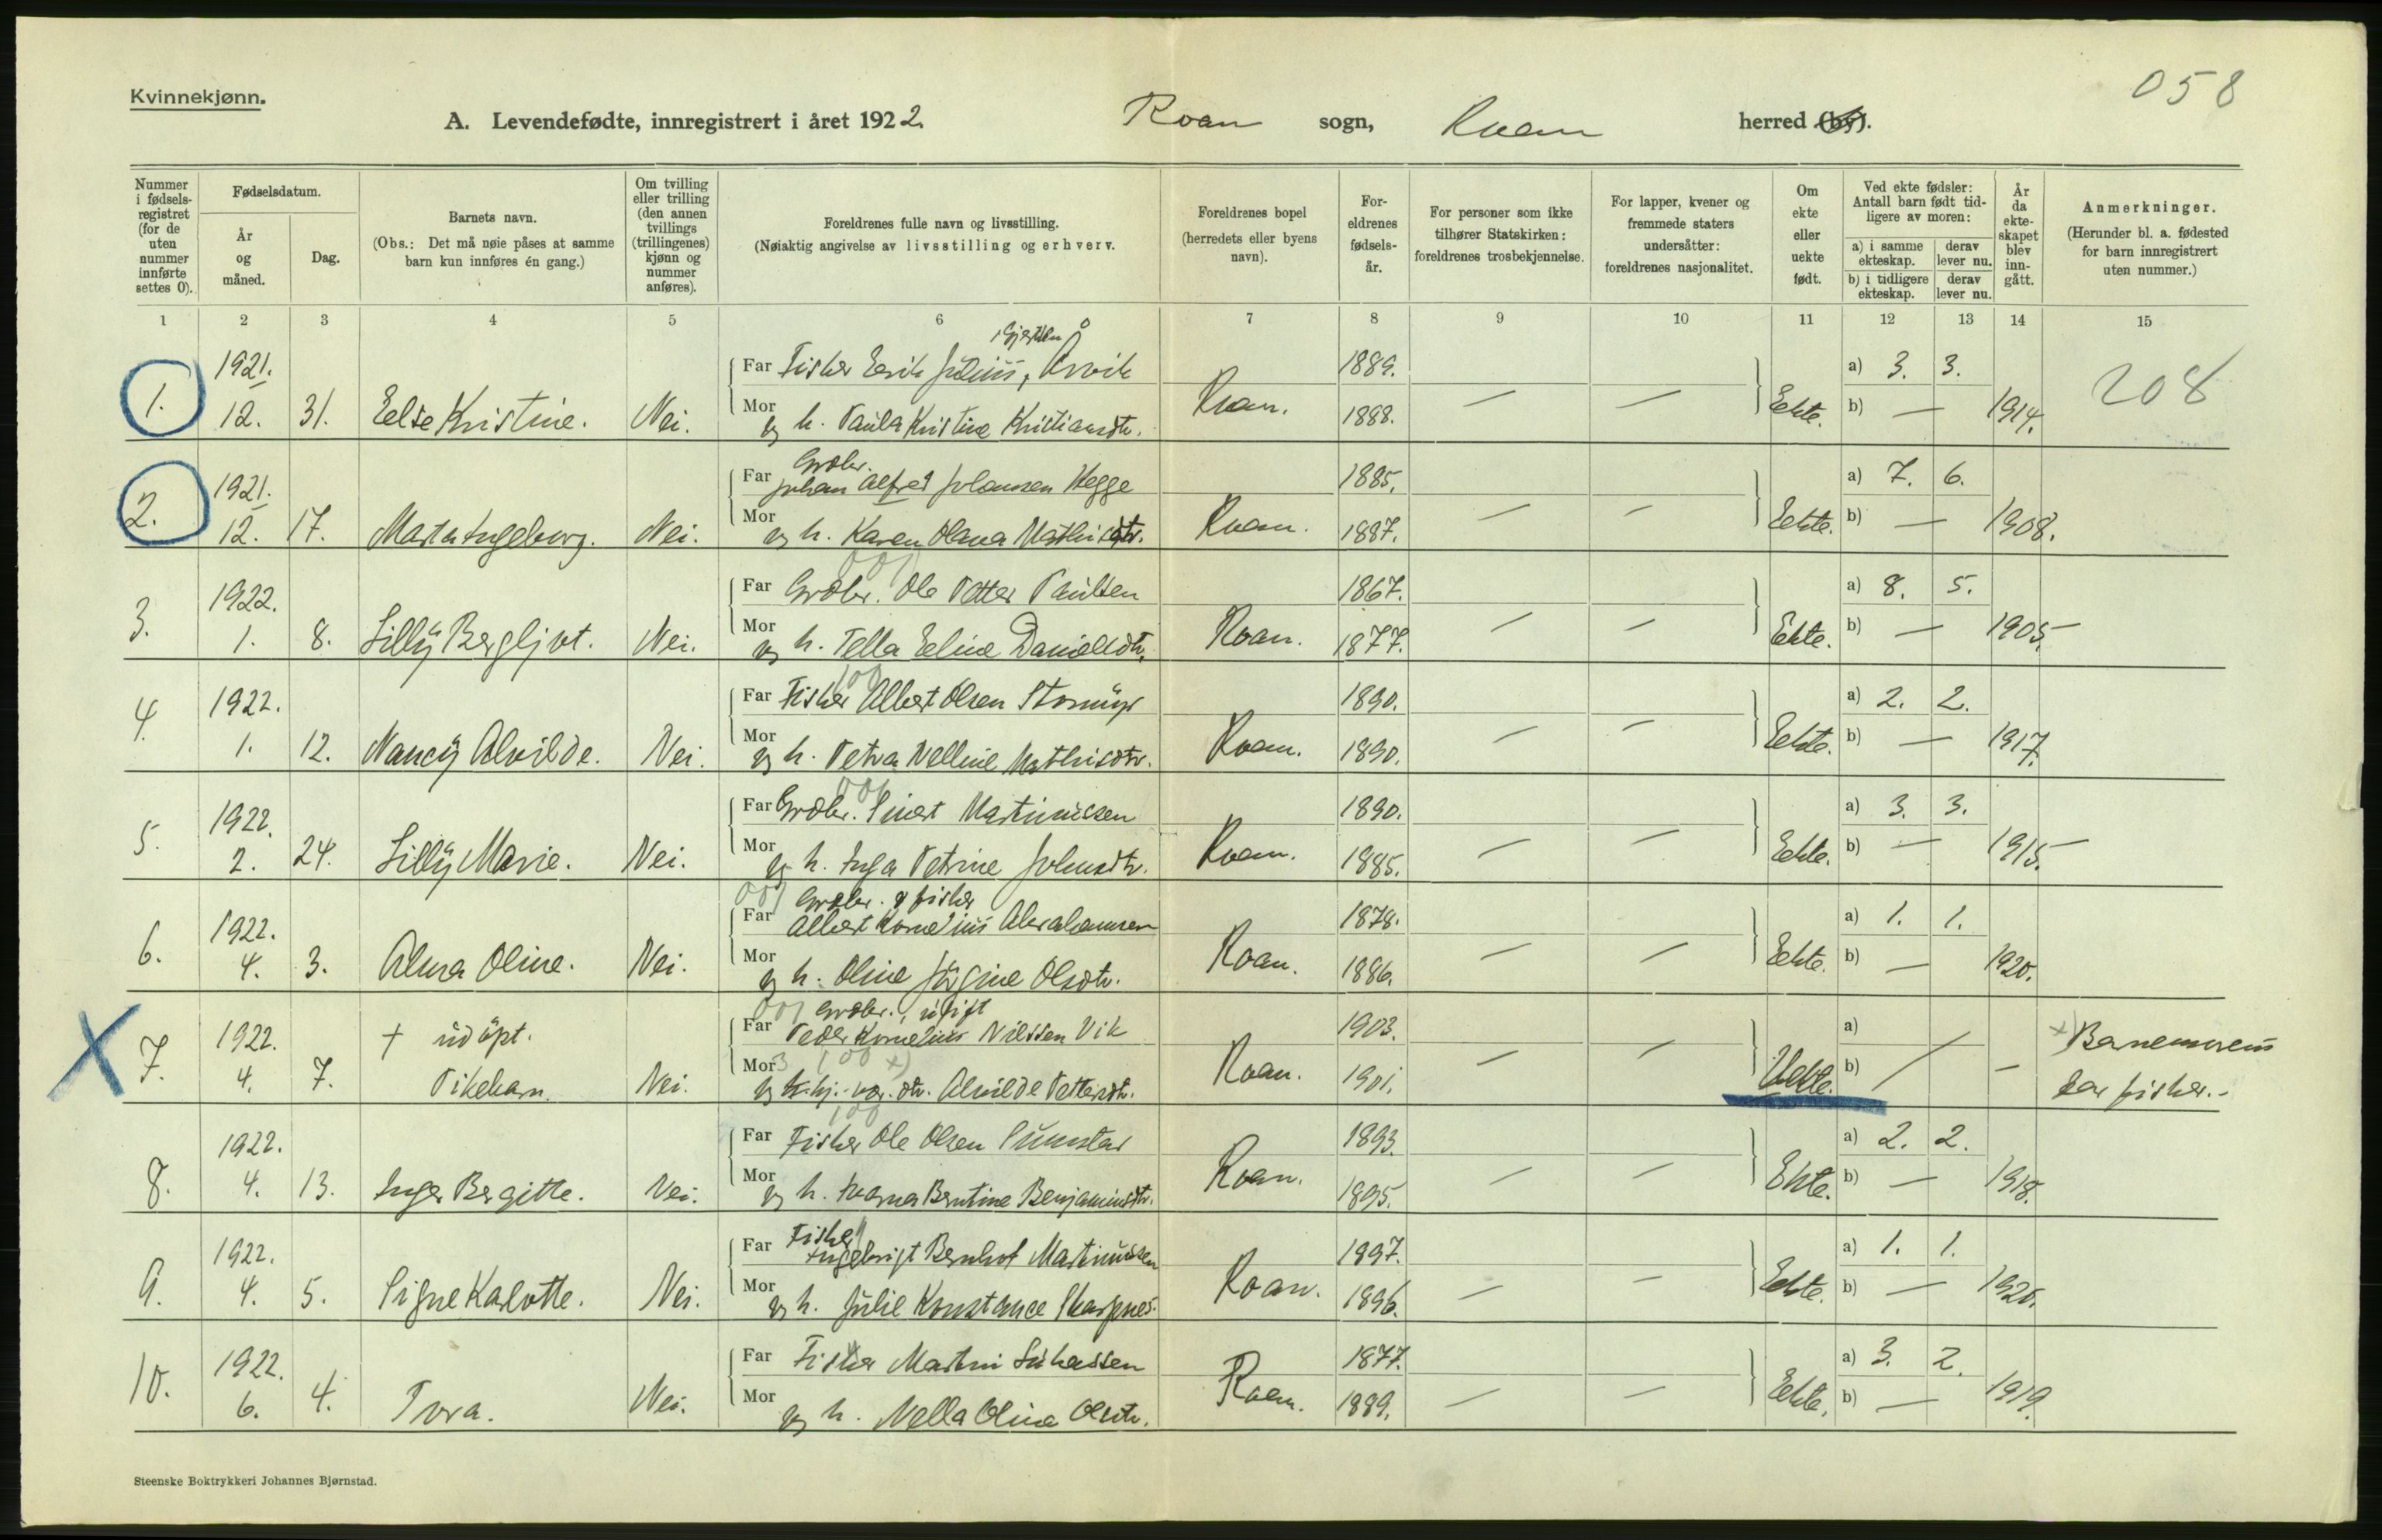 Kvinnekjønn.
058
A. Levendefødte, innregistrert i året 1922. Roan sogn, Roan herred (by).
Nummer i fødsels-registret (for de uten nummer innførte settes 0).
Fødselsdatum.
År og måned.
Dag.
Barnets navn.
(Obs.: Det må nøie påses at samme barn kun innføres én gang.)
Om tvilling eller trilling (den annen tvillings (trillingenes) kjønn og nummer anføres).
Foreldrenes fulle navn og livsstilling.
(Nøiaktig angivelse av livsstilling og erhverv.
Foreldrenes bopel (herredets eller byens navn).
For-eldrenes fødsels-år.
For personer som ikke tilhører Statskirken: foreldrenes trosbekjennelse.
For lapper, kvener og fremmede staters undersåtter: foreldrenes nasjonalitet.
Om ekte eller uekte født.
Ved ekte fødsler: Antall barn født tid-ligere av moren:
a) i samme ekteskap.
derav lever nu.
b) i tidligere ekteskap.
derav lever nu.
År da ekte-skapet blev inn-gått.
Anmerkninger.
(Herunder bl. a. fødested for barn innregistrert uten nummer.)
1 2 3 4 5 6 7 8 9 10 11 12 13 14 15
1921. Far Fisker Erik Julius, Arvik 1889. a) 3. 3. 208
1. 12. 31. Else Kristine. Nei. Mor og h. Paula Kristine Kristiansdtr. Roan. 1888. — — Ekte. b) — 1914.
Grdbr.
1921. Far Johan Alfred Johansen Hegge 1885. a) 7. 6.
2. 12. 17. Marta Ingeborg. Nei. Mor og h. Karen Olava Mathisdtr. Roan. 1887. — — Ekte. b) — 1908.
1922. Far Grdbr. Ole Petter Paulsen 1867. a) 8. 5.
3. 1. 8. Lilly Bergljot. Nei. Mor og h. Pella Eline Danielsdtr. Roan. 1877. — — Ekte. b) — 1905.
1922. Far Fisker Albert Olsen Stormyr 1890. a) 2. 2.
4. 1. 12. Nancy Alvilde. Nei. Mor og h. Petra Nelline Mathisdtr. Roan. 1890. — — Ekte. b) — 1917.
1922. Far Grdbr. Sivert Martinussen 1890. a) 3. 3.
5. 2. 24. Lilly Marie. Nei. Mor og h. Inga Petrine Johnsdtr. Roan. 1885. — — Ekte. b) — 1915.
001 Grdbr. & fisker
1922. Far Albert Kornelius Abrahamsen 1878. a) 1. 1.
6. 4. 3. Alma Oline. Nei. Mor og h. Oline Jørgine Olsdtr. Roan. 1886. — — Ekte. b) — 1920.
001 Grdbr., ugift
1922. + udøpt. Far Peder Kornelius Nilssen Vik 1903. a) x) Barnemorens
X 7. 4. 7. Pikebarn. Nei. Mor Alvilde Pettersdtr. Roan. 1901. — — Uekte. b) — far fisker.
1922. Far Fisker Ole Olsen Sumstad 1893. a) 2. 2.
8. 4. 13. Inger Bergitte. Nei. Mor og h. Berntine Benjaminsdtr. Roan. 1895. — — Ekte. b) — 1918.
Fisker
1922. Far Ingebrigt Bernhof Martinussen 1897. a) 1. 1.
9. 4. 5. Signe Karlotte. Nei. Mor og h. Julie Konstance Skarpnes. Roan. 1896. — — Ekte. b) — 1920.
1922. Far Fisker Martin Lukassen 1877. a) 3. 2.
10. 6. 4. Tora. Nei. Mor og h. Nella Oline Olsdtr. Roan. 1889. — — Ekte. b) — 1919.
Steenske Boktrykkeri Johannes Bjørnstad.